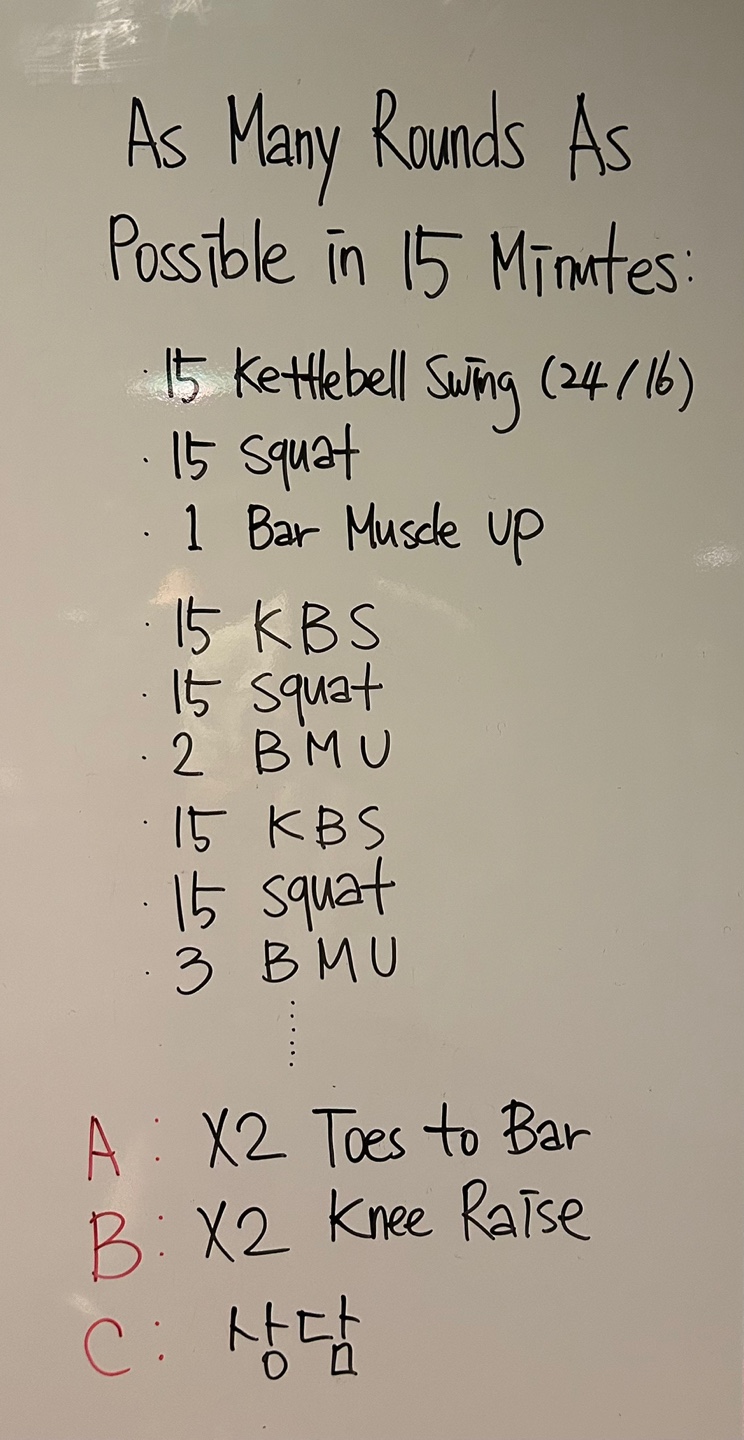 As Many Rounds As
Possible in 15 Minutes:
· 15 Kettlebell Swing (24/16)
· 15 Squat
· 1 Bar Muscle Up
· 15 KBS
· 15 Squat
· 2 BMU
· 15 KBS
· 15 Squat
· 3 BMU
......
A: X2 Toes to Bar
B: X2 Knee Raise
C: 상담